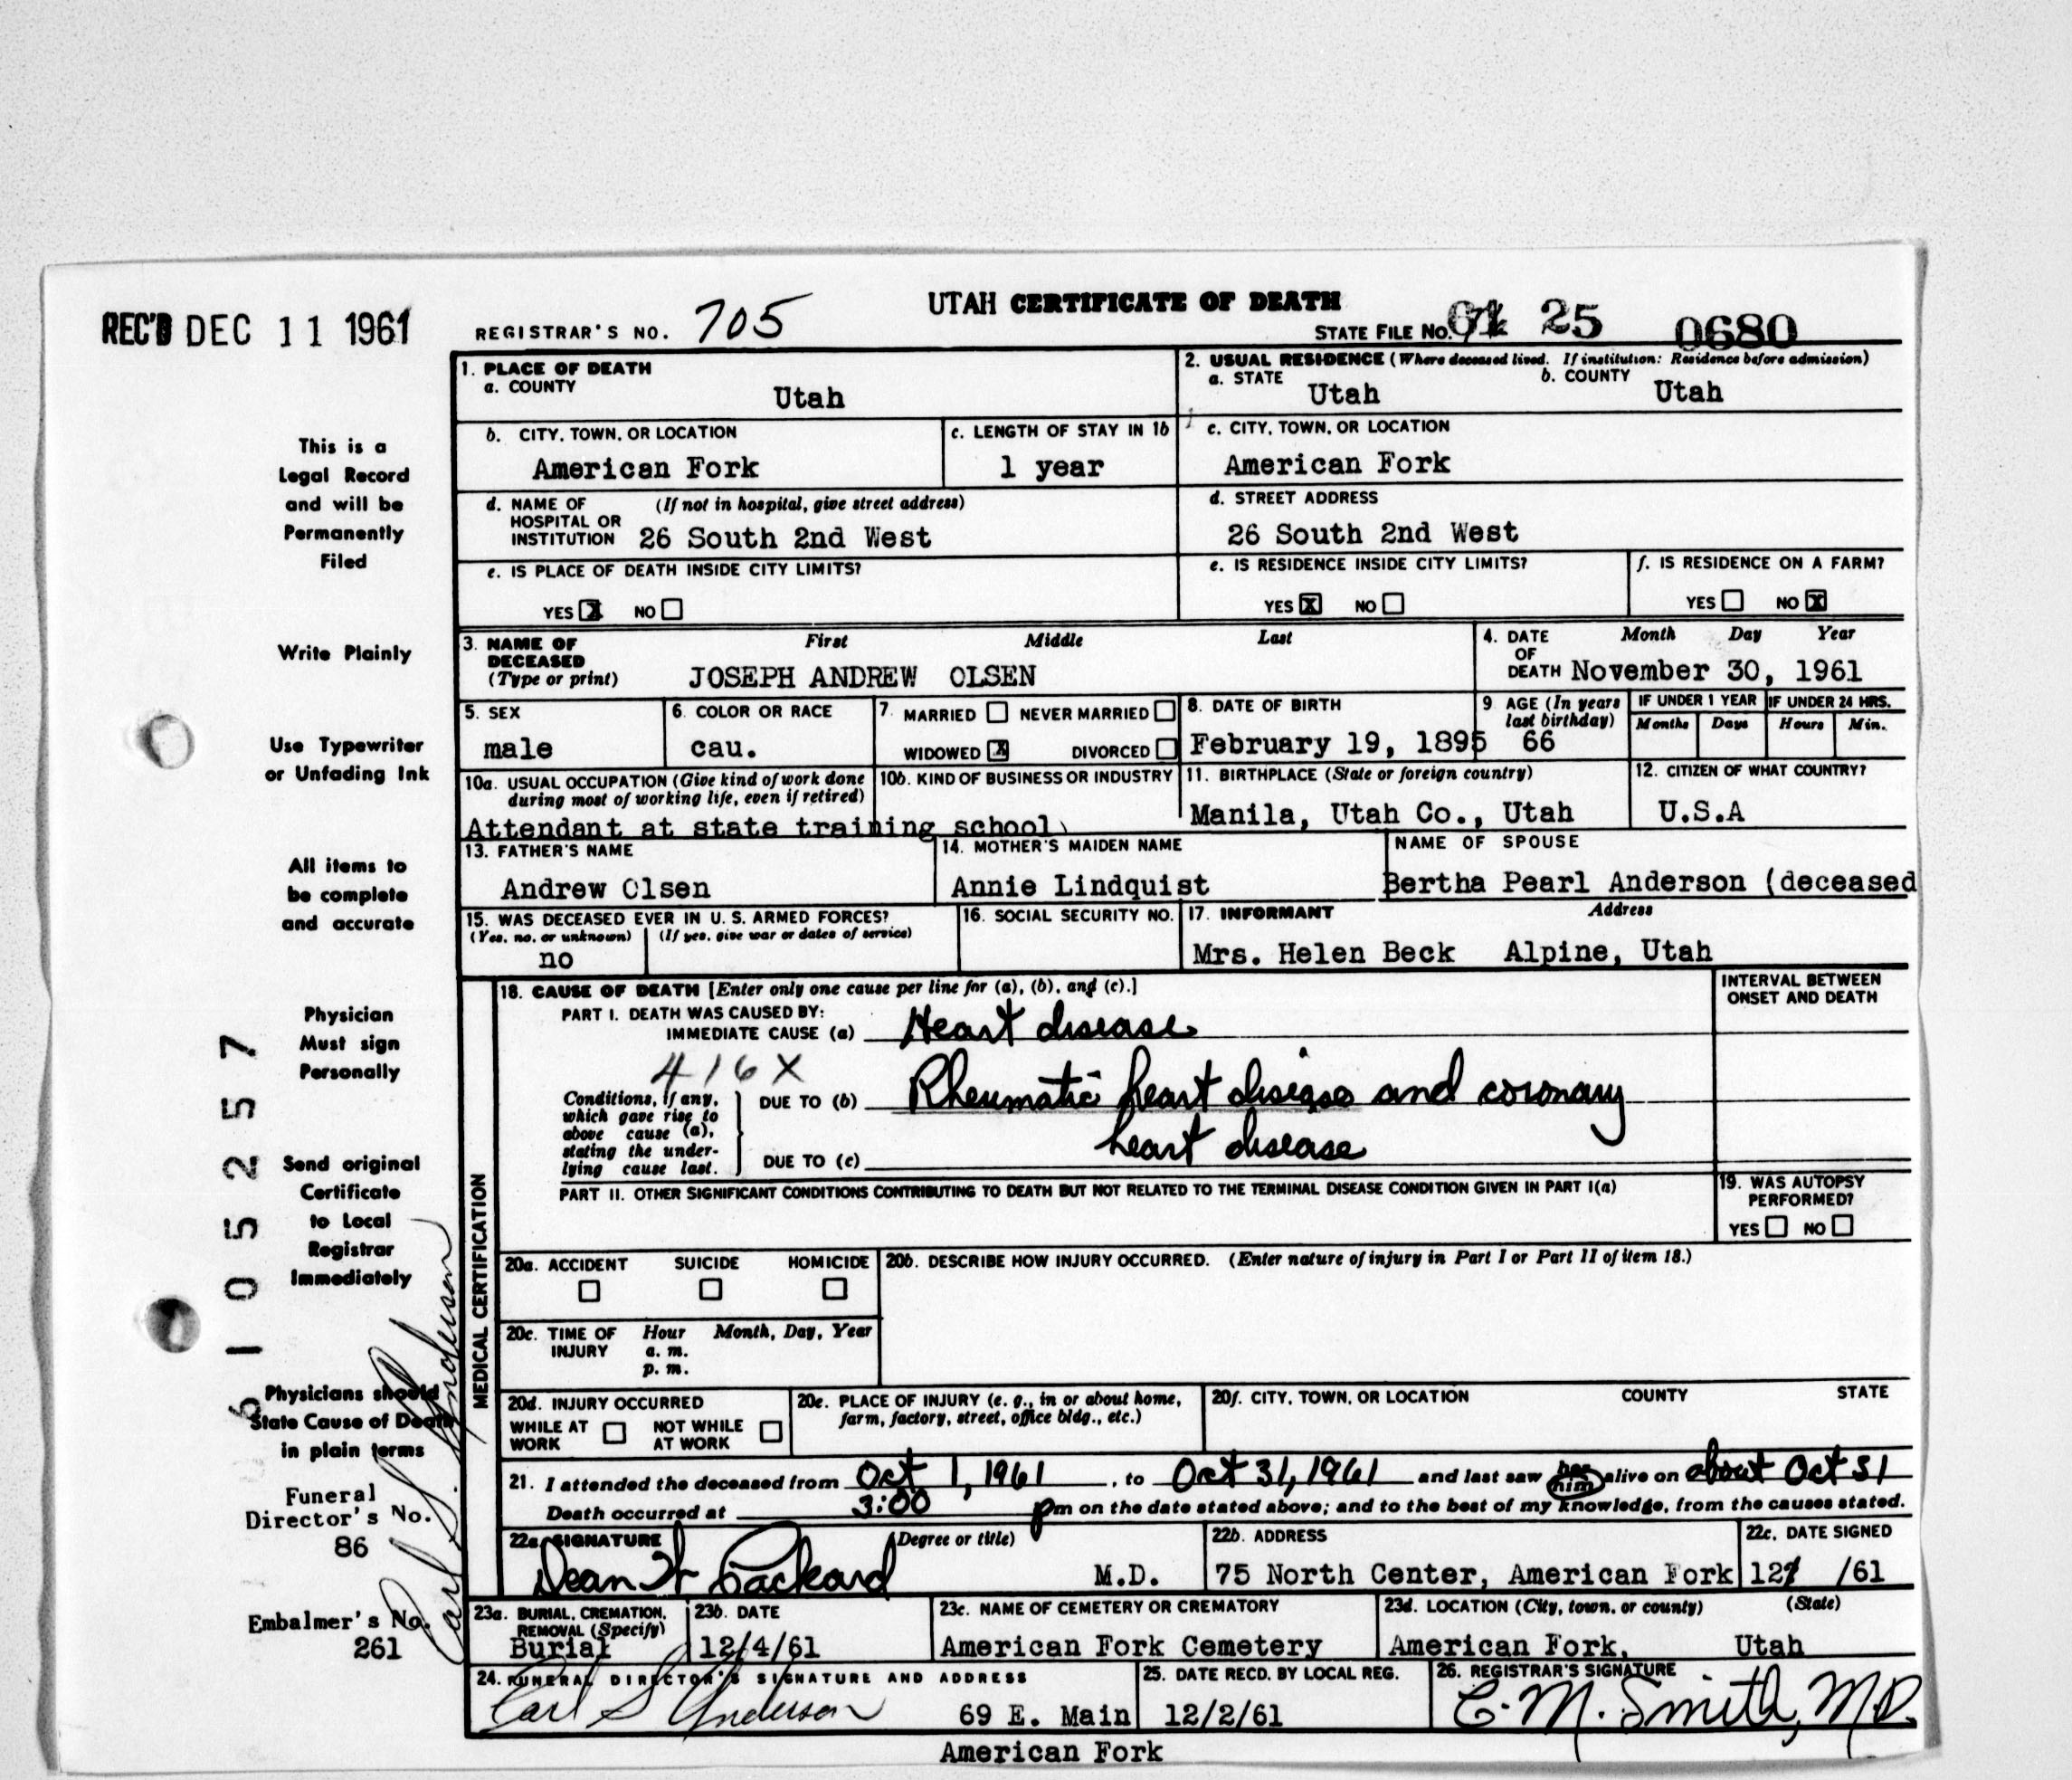 UTAH CERTIFICATE OF DEATH
REC'D DEC 11 1961
REGISTRAR'S NO. 705
STATE FILE NO. 61 25 0680
1. PLACE OF DEATH
a. COUNTY
Utah
2. USUAL RESIDENCE (Where deceased lived. If institution: Residence before admission)
a. STATE b. COUNTY
Utah Utah
b. CITY, TOWN, OR LOCATION
American Fork
c. LENGTH OF STAY IN 1b
1 year
c. CITY, TOWN, OR LOCATION
American Fork
d. NAME OF (If not in hospital, give street address)
HOSPITAL OR
INSTITUTION 26 South 2nd West
d. STREET ADDRESS
26 South 2nd West
e. IS PLACE OF DEATH INSIDE CITY LIMITS?
YES X NO
e. IS RESIDENCE INSIDE CITY LIMITS?
YES X NO
f. IS RESIDENCE ON A FARM?
YES NO X
3. NAME OF First Middle Last
DECEASED
(Type or print) JOSEPH ANDREW OLSEN
4. DATE Month Day Year
OF
DEATH November 30, 1961
5. SEX
male
6. COLOR OR RACE
cau.
7. MARRIED NEVER MARRIED
WIDOWED X DIVORCED
8. DATE OF BIRTH
February 19, 1895
9 AGE (In years
last birthday)
66
IF UNDER 1 YEAR
Months Days
IF UNDER 24 HRS.
Hours Min.
10a. USUAL OCCUPATION (Give kind of work done
during most of working life, even if retired)
10b. KIND OF BUSINESS OR INDUSTRY
Attendant at state training school
11. BIRTHPLACE (State or foreign country)
Manila, Utah Co., Utah
12. CITIZEN OF WHAT COUNTRY?
U.S.A
13. FATHER'S NAME
Andrew Olsen
14. MOTHER'S MAIDEN NAME
Annie Lindquist
NAME OF SPOUSE
Bertha Pearl Anderson (deceased
15. WAS DECEASED EVER IN U. S. ARMED FORCES?
(Yes, no, or unknown) (If yes, give war or dates of service)
no
16. SOCIAL SECURITY NO.
17. INFORMANT Address
Mrs. Helen Beck Alpine, Utah
MEDICAL CERTIFICATION
18. CAUSE OF DEATH [Enter only one cause per line for (a), (b), and (c).]
INTERVAL BETWEEN
ONSET AND DEATH
PART I. DEATH WAS CAUSED BY:
IMMEDIATE CAUSE (a) Heart disease
416X
Conditions, if any,
which gave rise to
above cause (a),
stating the under-
lying cause last.
DUE TO (b) Rheumatic heart disease and coronary
heart disease
DUE TO (c)
PART II. OTHER SIGNIFICANT CONDITIONS CONTRIBUTING TO DEATH BUT NOT RELATED TO THE TERMINAL DISEASE CONDITION GIVEN IN PART I(a)
19. WAS AUTOPSY
PERFORMED?
YES NO
20a. ACCIDENT SUICIDE HOMICIDE
20b. DESCRIBE HOW INJURY OCCURRED. (Enter nature of injury in Part I or Part II of item 18.)
20c. TIME OF Hour Month, Day, Year
INJURY a. m.
p. m.
20d. INJURY OCCURRED
WHILE AT NOT WHILE
WORK AT WORK
20e. PLACE OF INJURY (e. g., in or about home,
farm, factory, street, office bldg., etc.)
20f. CITY, TOWN, OR LOCATION COUNTY STATE
21. I attended the deceased from Oct 1, 1961, to Oct 31, 1961 and last saw her him alive on about Oct 31
Death occurred at 3:00 pm on the date stated above; and to the best of my knowledge, from the causes stated.
22a. SIGNATURE (Degree or title)
Dean W Packard M.D.
22b. ADDRESS
75 North Center, American Fork
22c. DATE SIGNED
12/ /61
23a. BURIAL, CREMATION,
REMOVAL (Specify)
Burial
23b. DATE
12/4/61
23c. NAME OF CEMETERY OR CREMATORY
American Fork Cemetery
23d. LOCATION (City, town, or county) (State)
American Fork, Utah
24. FUNERAL DIRECTOR'S SIGNATURE AND ADDRESS
Carl S Anderson 69 E. Main
American Fork
25. DATE RECD. BY LOCAL REG.
12/2/61
26. REGISTRAR'S SIGNATURE
C. M. Smith, M.D.
This is a
Legal Record
and will be
Permanently
Filed
Write Plainly
Use Typewriter
or Unfading Ink
All items to
be complete
and accurate
Physician
Must sign
Personally
Send original
Certificate
to Local
Registrar
Immediately
Physicians should
State Cause of Death
in plain terms
Funeral
Director's No.
86
Embalmer's No.
261
6105257
Carl S. Anderson